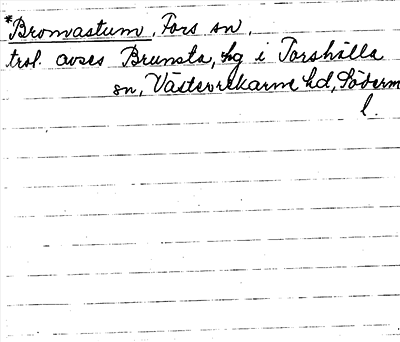 *Bromastum, Fors sn,
trol. avses Brunsta, hg i Torshälla
sn, Västerrekarne hd, Söderm
l.